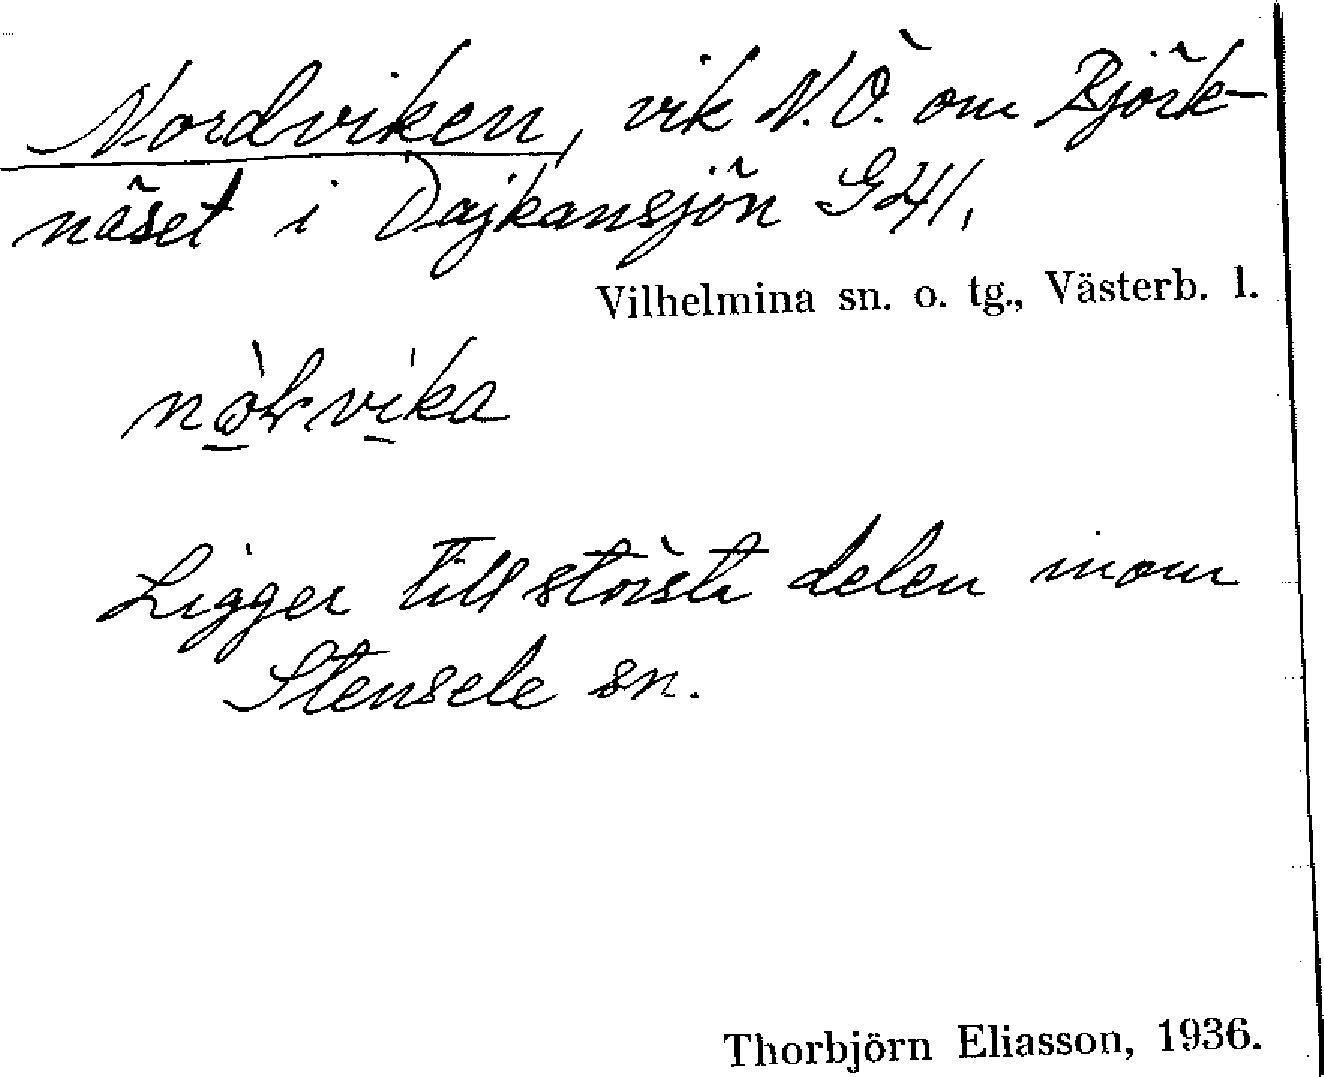 Nordviken, vik N.Ö. om Björk-
näset i Dajkansjön G41.
Vilhelmina sn. o. tg., Västerb. l.
Ligger till största delen inom
Stensele sn.
Thorbjörn Eliasson, 1936.